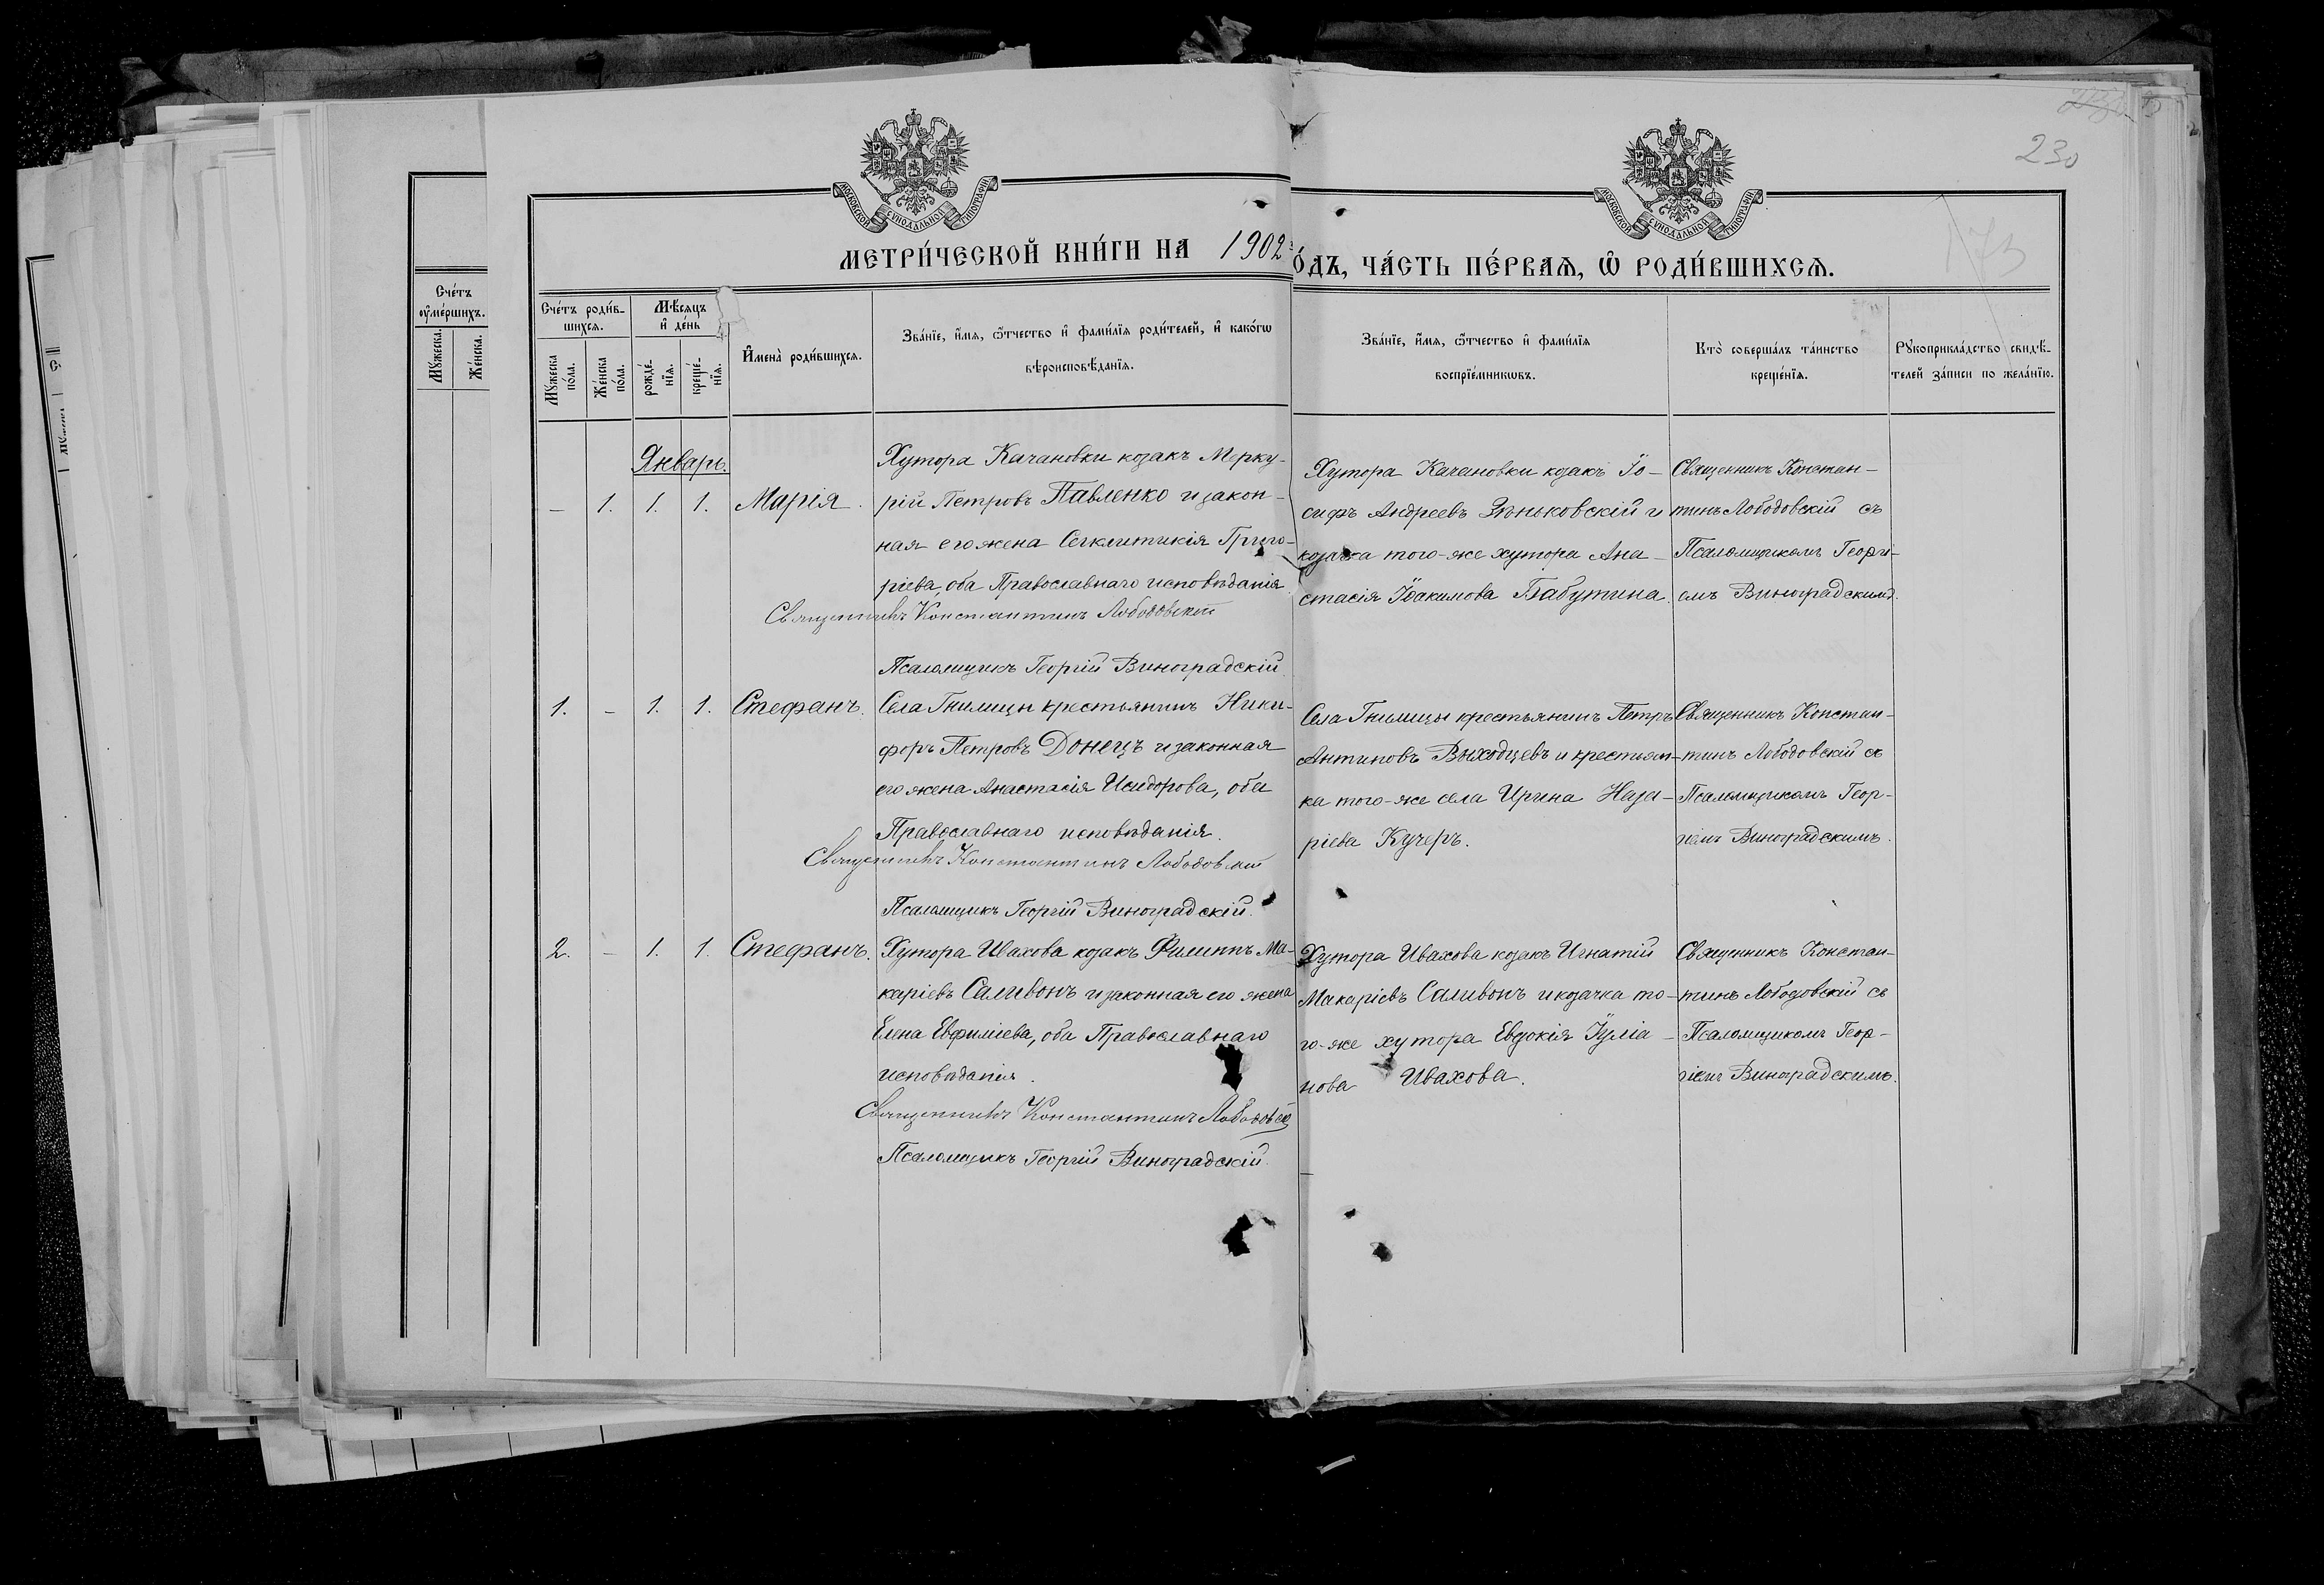 230
МОСКОВСКОЙ СУНОДАЛЬНОЙ ТИПОГРАФІИ
МОСКОВСКОЙ СУНОДАЛЬНОЙ ТИПОГРАФІИ
МЕТРИ́ЧЕСКОЙ КНИ́ГИ НА 1902
О́ДЪ, ЧА́СТЬ ПЕ́РВАѦ, Ѡ РОДИ́ВШИХСѦ.
Сче́тъ
ѹ҆ме́ршихъ.
Мꙋ́жеска.
Же́нска.
Сче́тъ роди́в-
шихсѧ.
Мꙋ́жеска
по́ла.
Же́нска
по́ла.
Мѣ́сѧцъ
и҆ де́нь
рожде́-
нїѧ.
креще́-
нїѧ.
И҆мена̀ роди́вшихсѧ.
Зва́нїе, и҆́мѧ, ѻ҆́тчество и҆ фами́лїѧ роди́телей, и҆ како́гѡ
вѣроисповѣ́данїѧ.
Зва́нїе, и҆́мѧ, ѻ҆́тчество и҆ фами́лїѧ
воспрїе́мникѡвъ.
Кто̀ соверша́лъ та́инство
креще́нїѧ.
Рꙋкоприкла́дство свидѣ́-
телей за́писи по жела́нїю.
Январь.
— 1. 1. 1. Марія.
Хутора Качановки козакъ Мерку-
рій Петровъ Павленко и закон-
ная его жена Сигклитикія Григо-
ріева, оба Православнаго исповѣданія.
Священникъ Константинъ Лободовскій
Псаломщикъ Георгій Виноградскій.
Хутора Качановки козакъ Іо-
сифъ Андреевъ Зѣньковскій и
козачка того-же хутора Ана-
стасія Іоакимова Бабутина.
Священникъ Констан-
тинъ Лободовскій съ
Псаломщикомъ Георгі-
емъ Виноградскимъ.
1. — 1. 1. Стефанъ.
Села Гнилицы крестьянинъ Ники-
форъ Петровъ Донецъ и законная
его жена Анастасія Исидорова, оба
Православнаго исповѣданія.
Священникъ Константинъ Лободовскій
Псаломщикъ Георгій Виноградскій.
Села Гнилицы крестьянинъ Петръ
Антиповъ Выходцевъ и крестьян-
ка того-же села Ирина Наза-
ріева Кучеръ.
Священникъ Констан-
тинъ Лободовскій съ
Псаломщикомъ Геор-
гіемъ Виноградскимъ.
2. — 1. 1. Стефанъ.
Хутора Ивахова козакъ Филиппъ Ма-
каріевъ Саливонъ и законная его жена
Елена Евфиміева, оба Православнаго
исповѣданія.
Священникъ Константинъ Лободовскій
Псаломщикъ Георгій Виноградскій.
Хутора Ивахова козакъ Игнатій
Макаріевъ Саливонъ и козачка то-
го-же хутора Евдокія Іуліа-
нова Ивахова.
Священникъ Констан-
тинъ Лободовскій съ
Псаломщикомъ Геор-
гіемъ Виноградскимъ.